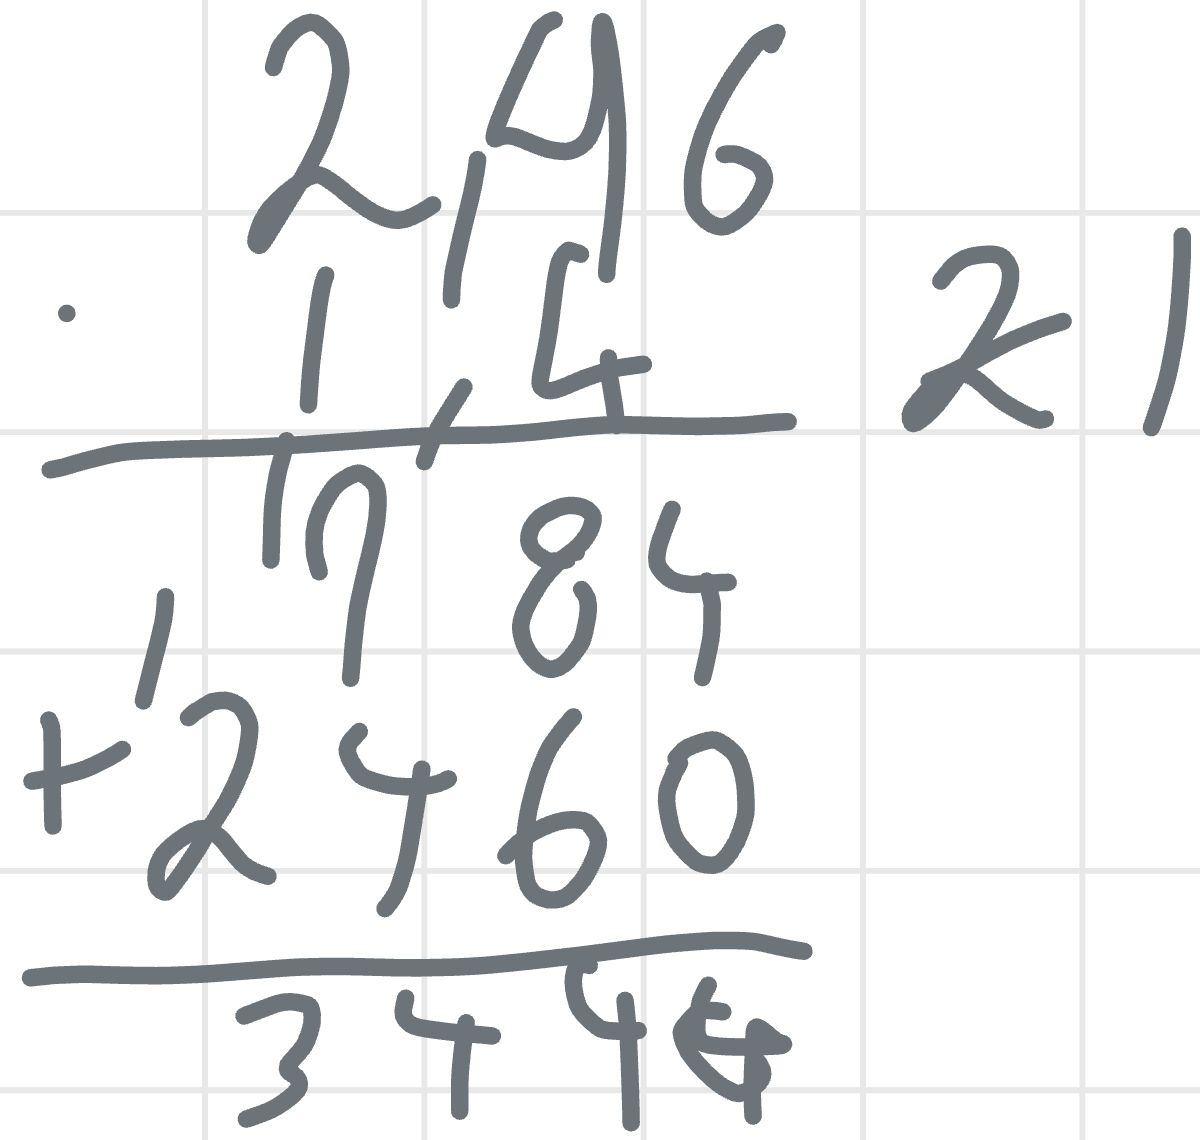 2,46
· 1,4 21
1
784
1
+2460
3444